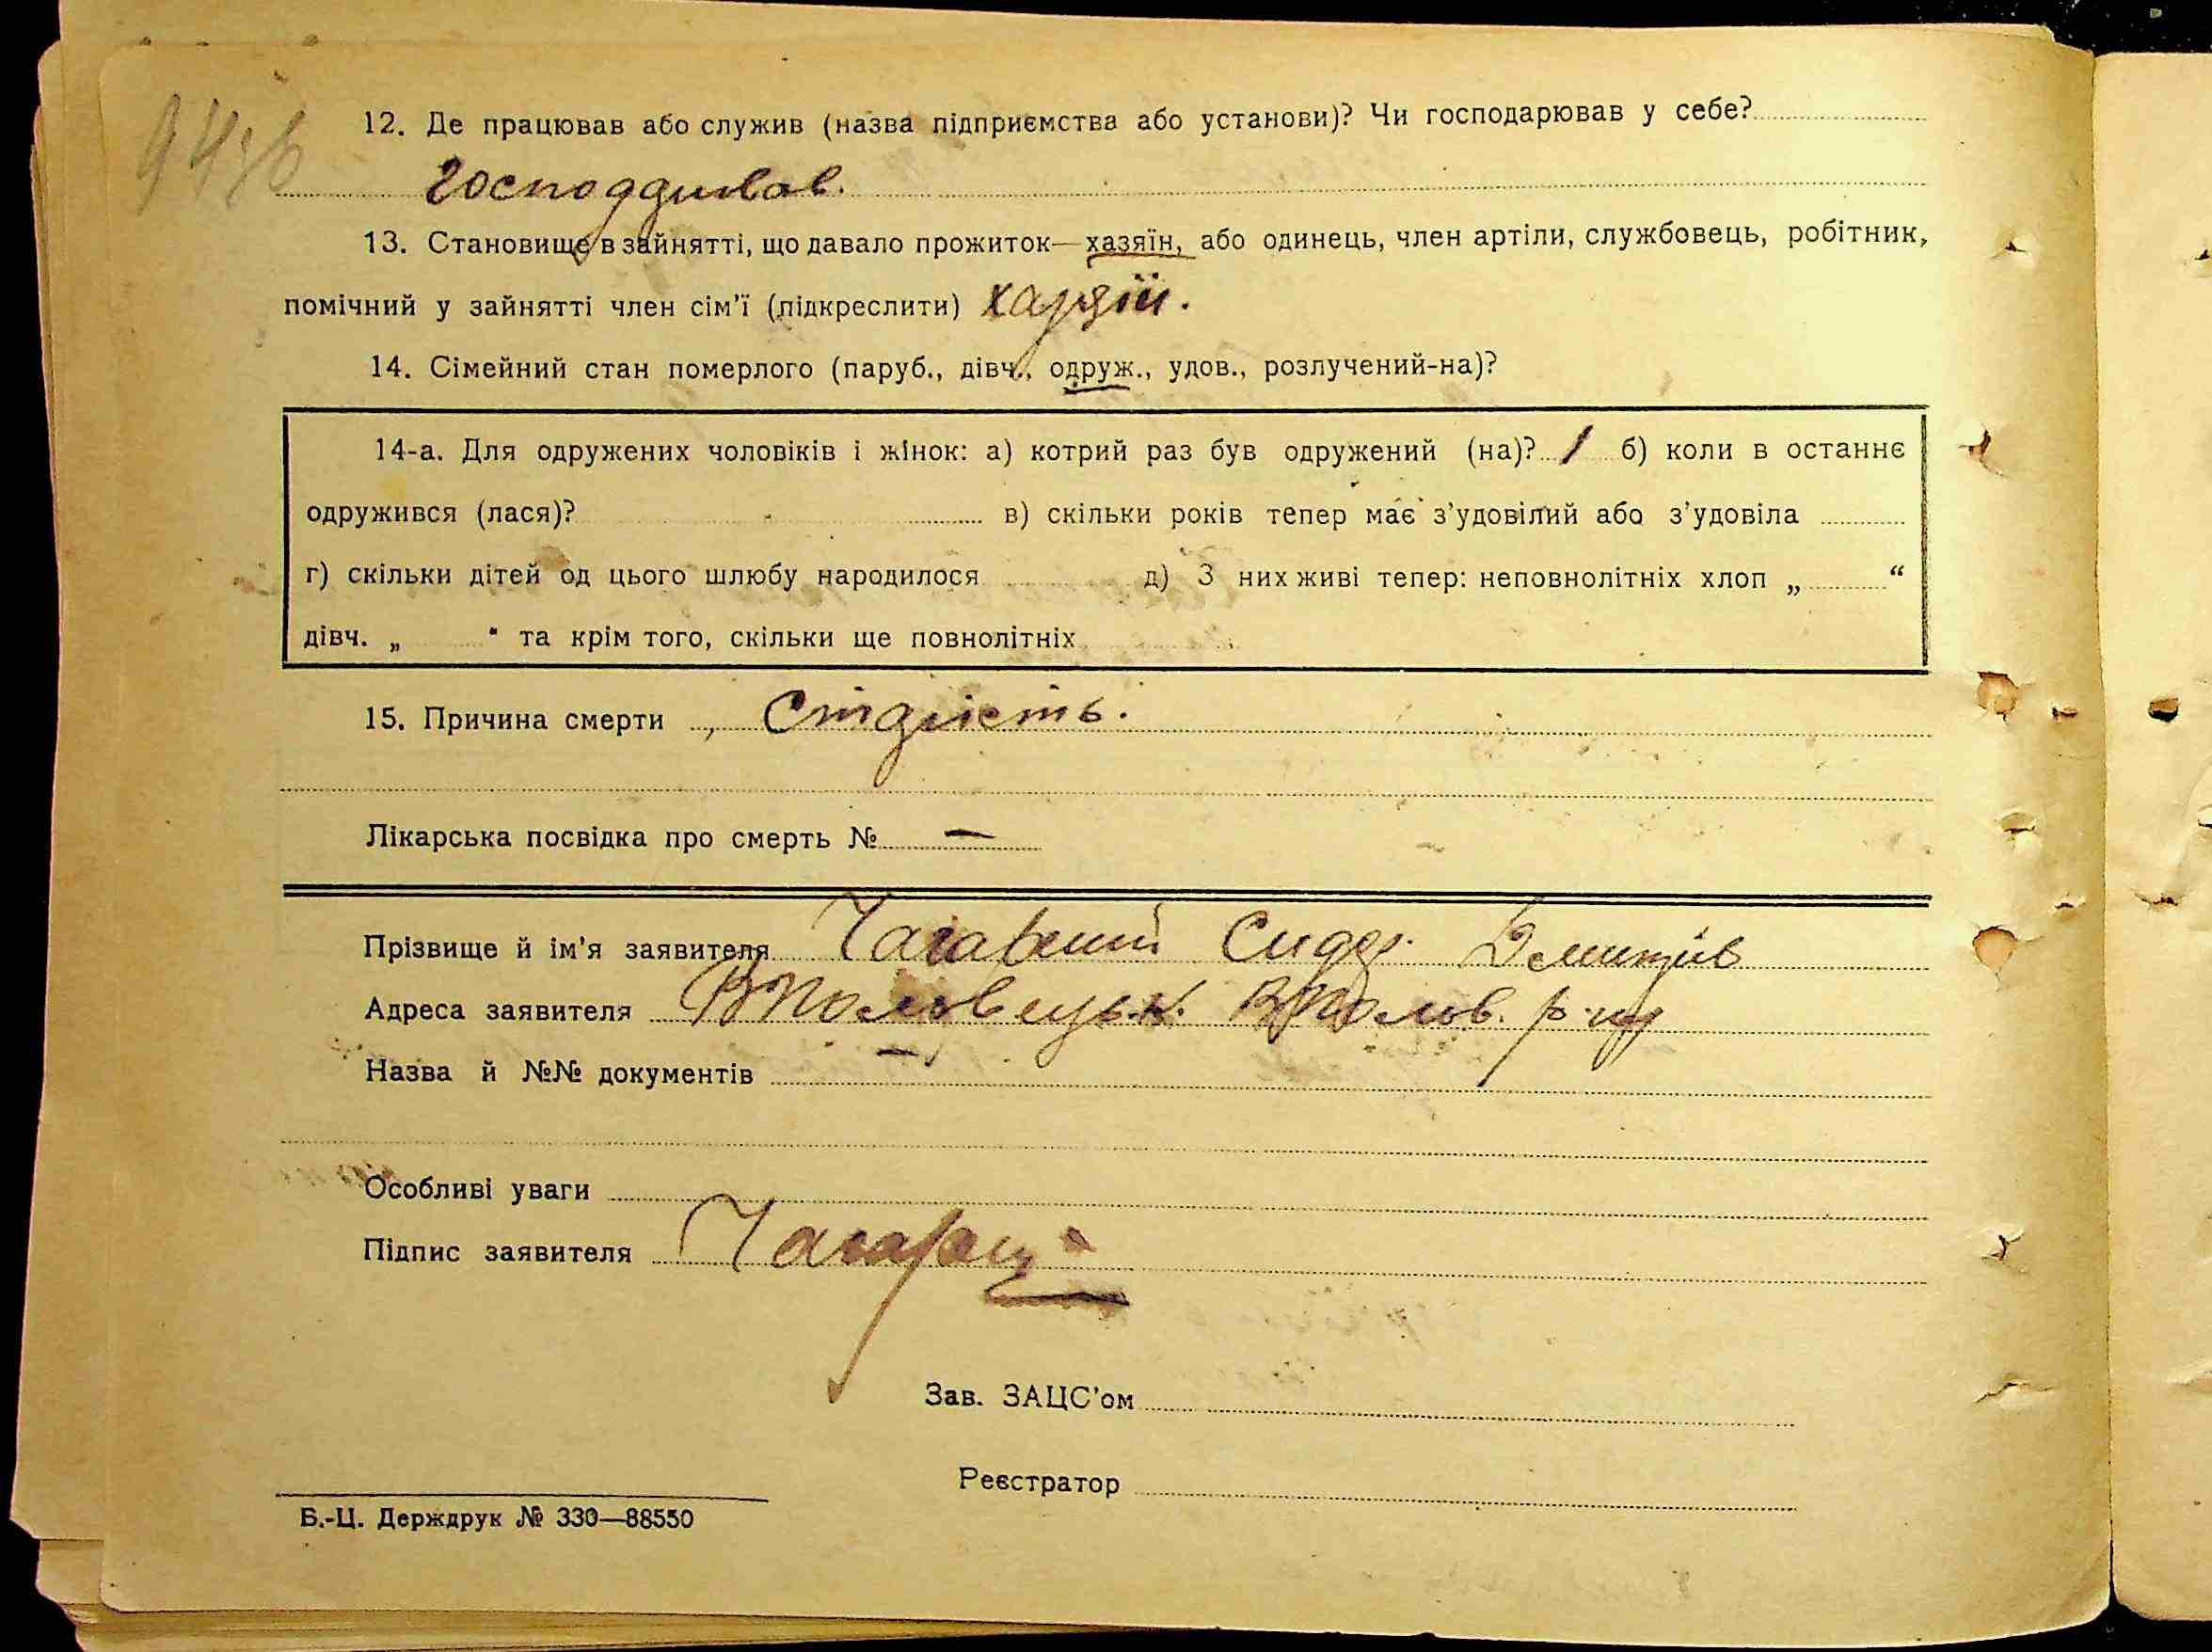 12. Де працював або служив (назва підприємства або установи)? Чи господарював у себе?
13. Становище в зайнятті, що давало прожиток—хазяїн, або одинець, член артіли, службовець, робітник,
помічний у зайнятті член сім'ї (підкреслити) хазяїн.
14. Сімейний стан померлого (паруб., дівч., одруж., удов., розлучений-на)?
14-а. Для одружених чоловіків і жінок: а) котрий раз був одружений (на)? 1 б) коли в останнє
одружився (лася)? в) скільки років тепер має з'удовілий або з'удовіла
г) скільки дітей од цього шлюбу народилося д) З них живі тепер: неповнолітніх хлоп „ “
дівч. „ “ та крім того, скільки ще повнолітніх
15. Причина смерти
Лікарська посвідка про смерть № —
Прізвище й ім'я заявителя
Адреса заявителя
Назва й №№ документів —
Особливі уваги
Підпис заявителя
Зав. ЗАЦС'ом
Реєстратор
Б.-Ц. Держдрук № 330—88550